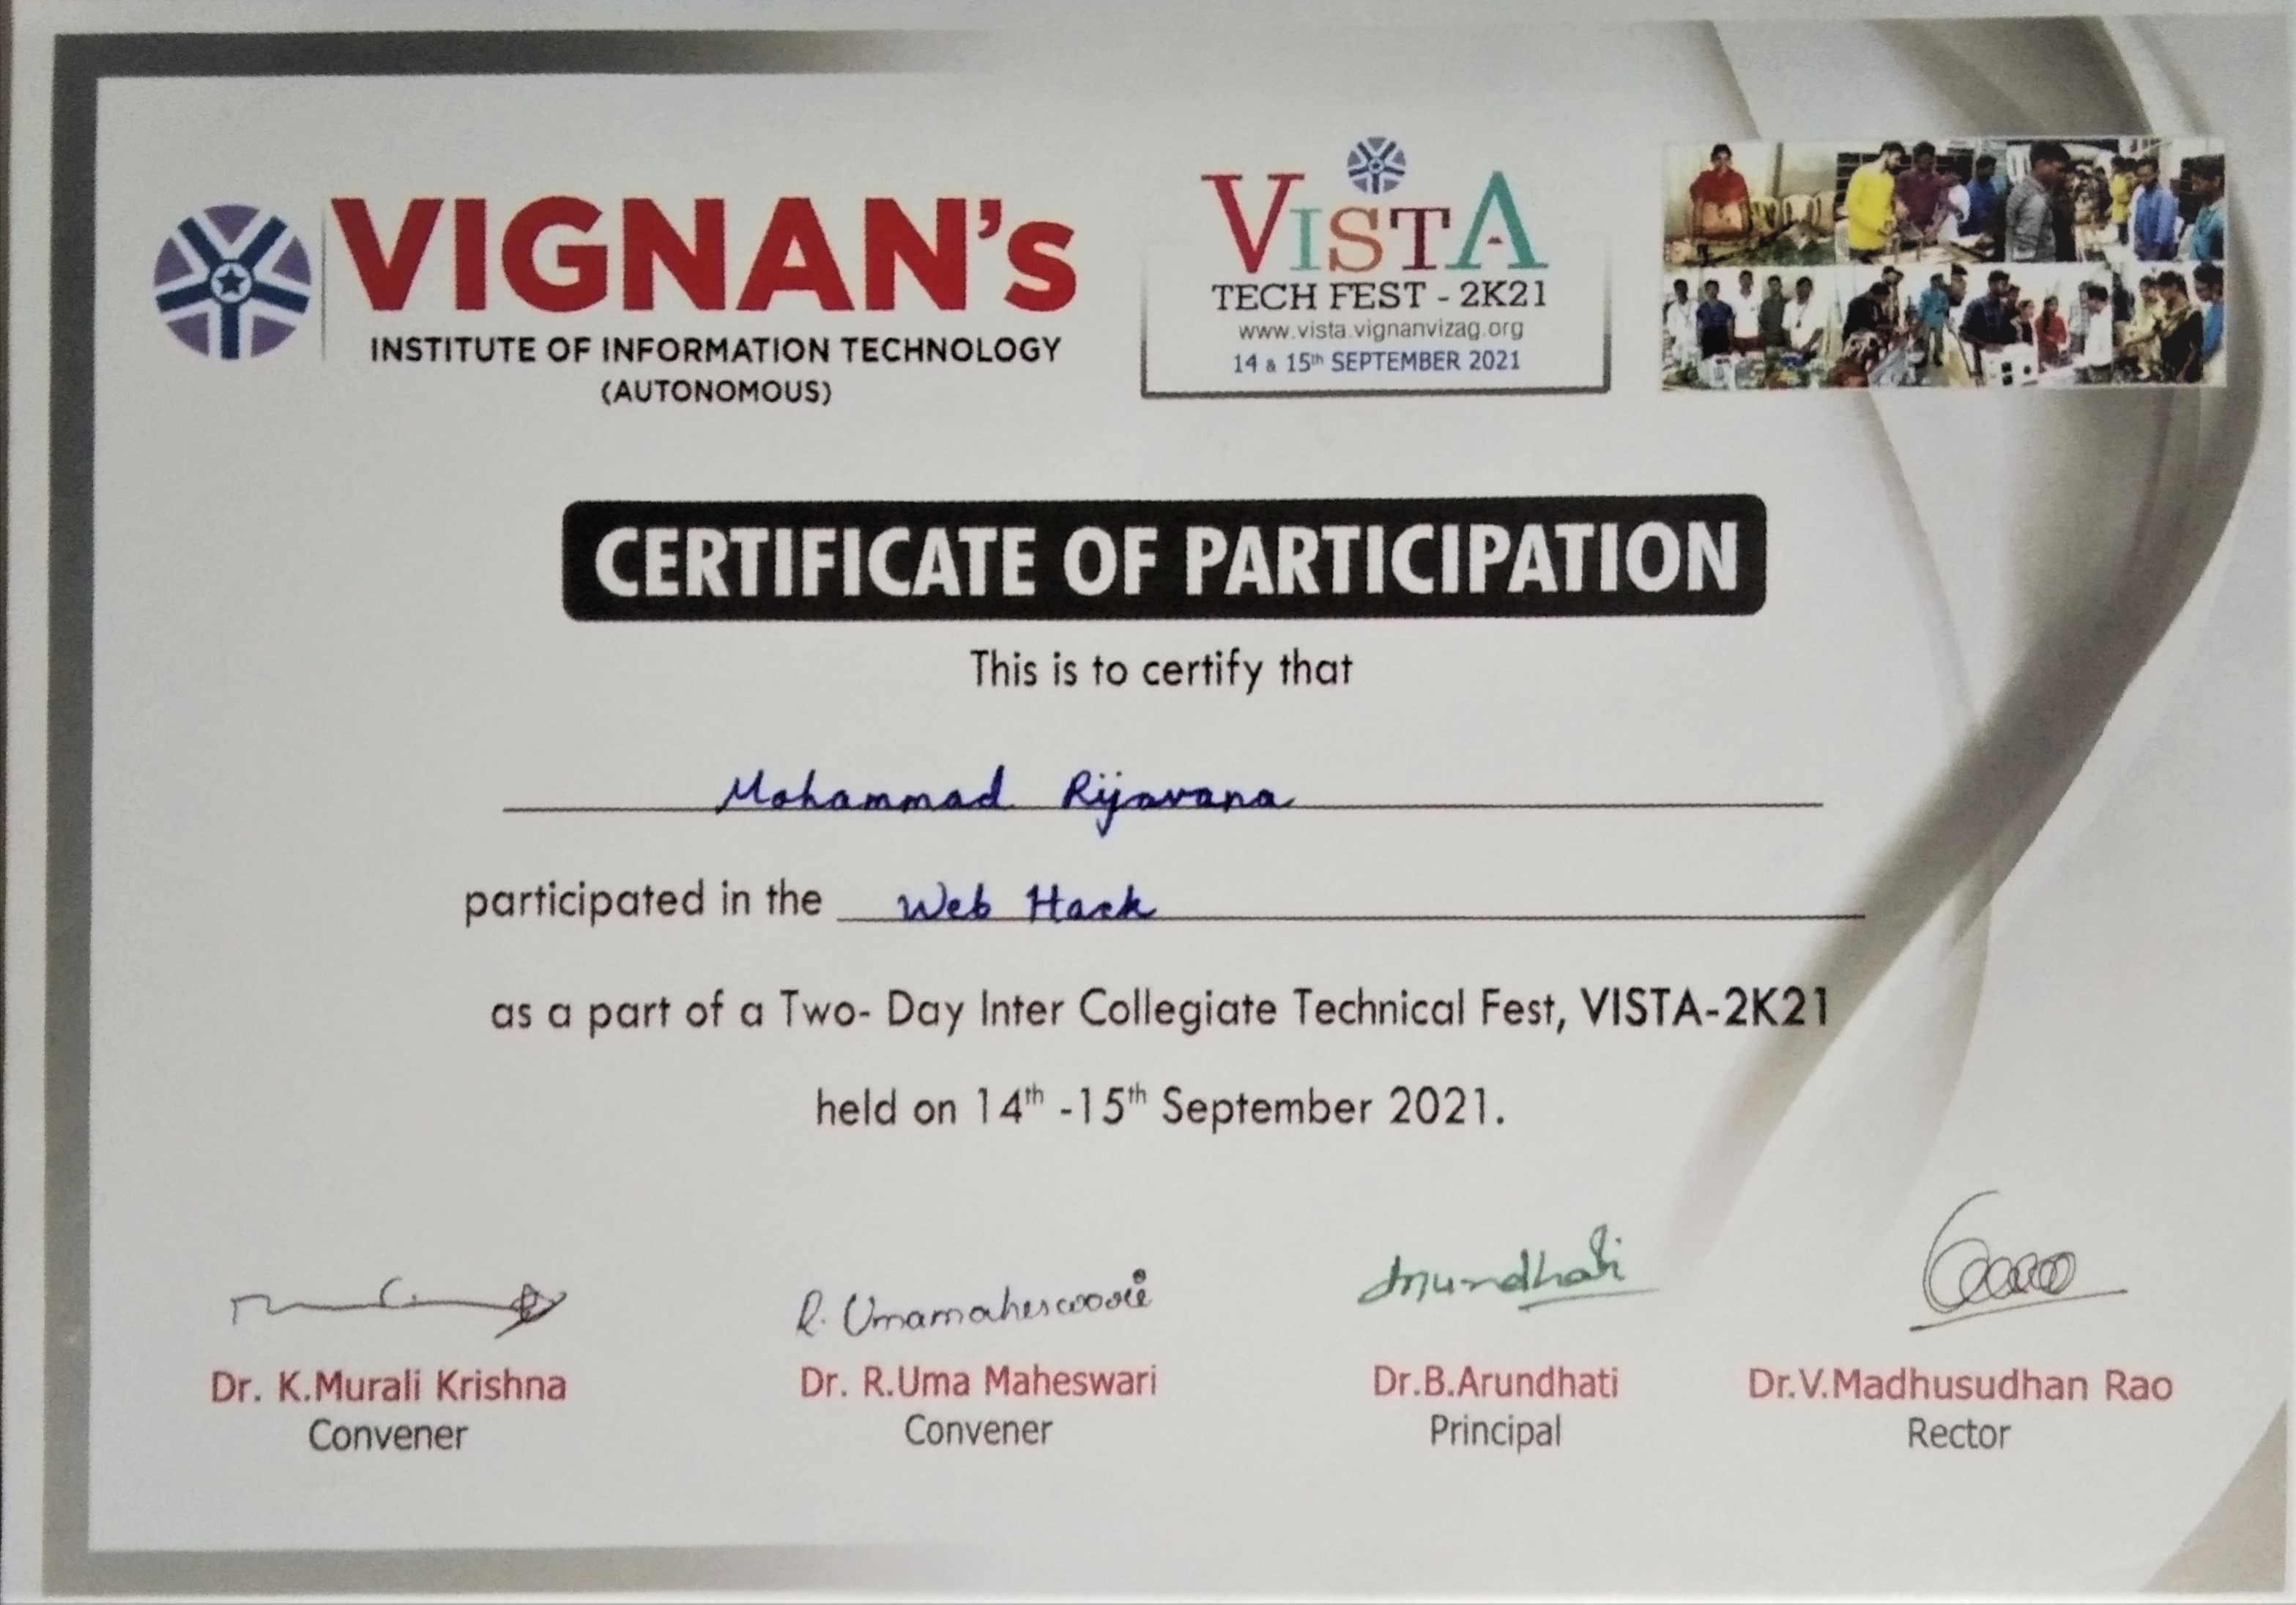 VIGNAN's
INSTITUTE OF INFORMATION TECHNOLOGY
(AUTONOMOUS)
VISTA
TECH FEST - 2K21
www.vista.vignanvizag.org
14 & 15th SEPTEMBER 2021
CERTIFICATE OF PARTICIPATION
This is to certify that
Mohammad Rijavana
participated in the Web Hack
as a part of a Two- Day Inter Collegiate Technical Fest, VISTA-2K21
held on 14th -15th September 2021.
R. Umamaheswari
Arundhati
Dr. K.Murali Krishna
Convener
Dr. R.Uma Maheswari
Convener
Dr.B.Arundhati
Principal
Dr.V.Madhusudhan Rao
Rector